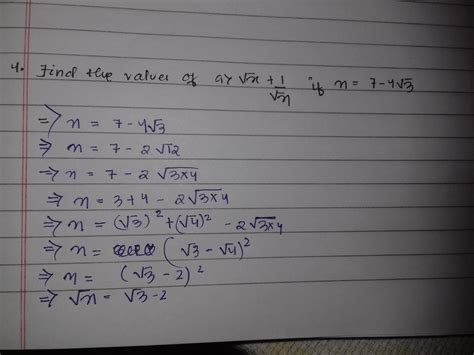 4. Find the values of a) √x + 1/√x if x = 7-4√3
=> x = 7-4√3
=> x = 7 - 2√12
=> x = 7 - 2√3×4
=> x = 3+4 - 2√3×4
=> x = (√3)² + (√4)² - 2√3×4
=> x = (√3 - √4)²
=> x = (√3 - 2)²
=> √x = √3-2